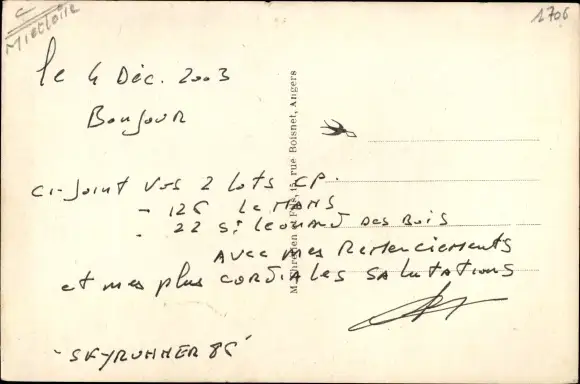 1706
le 4 Déc. 2003
Bonjour
ci-joint vos 2 lots CP.
- 126 Le MANS
- 22 St Leonard Des Bois
Avec mes Remerciements
et mes plus CORDIALES SALUTATIONS
"SKYRUNNER 86"
M. Chrétien et Fils, 15, rue Boisnet, Angers